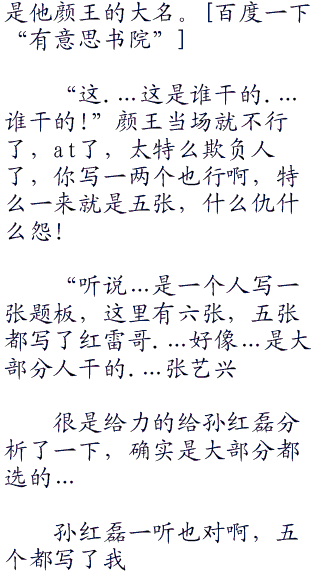 是他颜王的大名。[百度一下
“有意思书院”]
“这.…这是谁干的.…
谁干的!”颜王当场就不行
了，at了，太特么欺负人
了，你写一两个也行啊，特
么一来就是五张，什么仇什
么怨!
“听说…是一个人写一
张题板，这里有六张，五张
都写了红雷哥.…好像…是大
部分人干的.…张艺兴
很是给力的给孙红磊分
析了一下，确实是大部分都
选的…
孙红磊一听也对啊，五
个都写了我